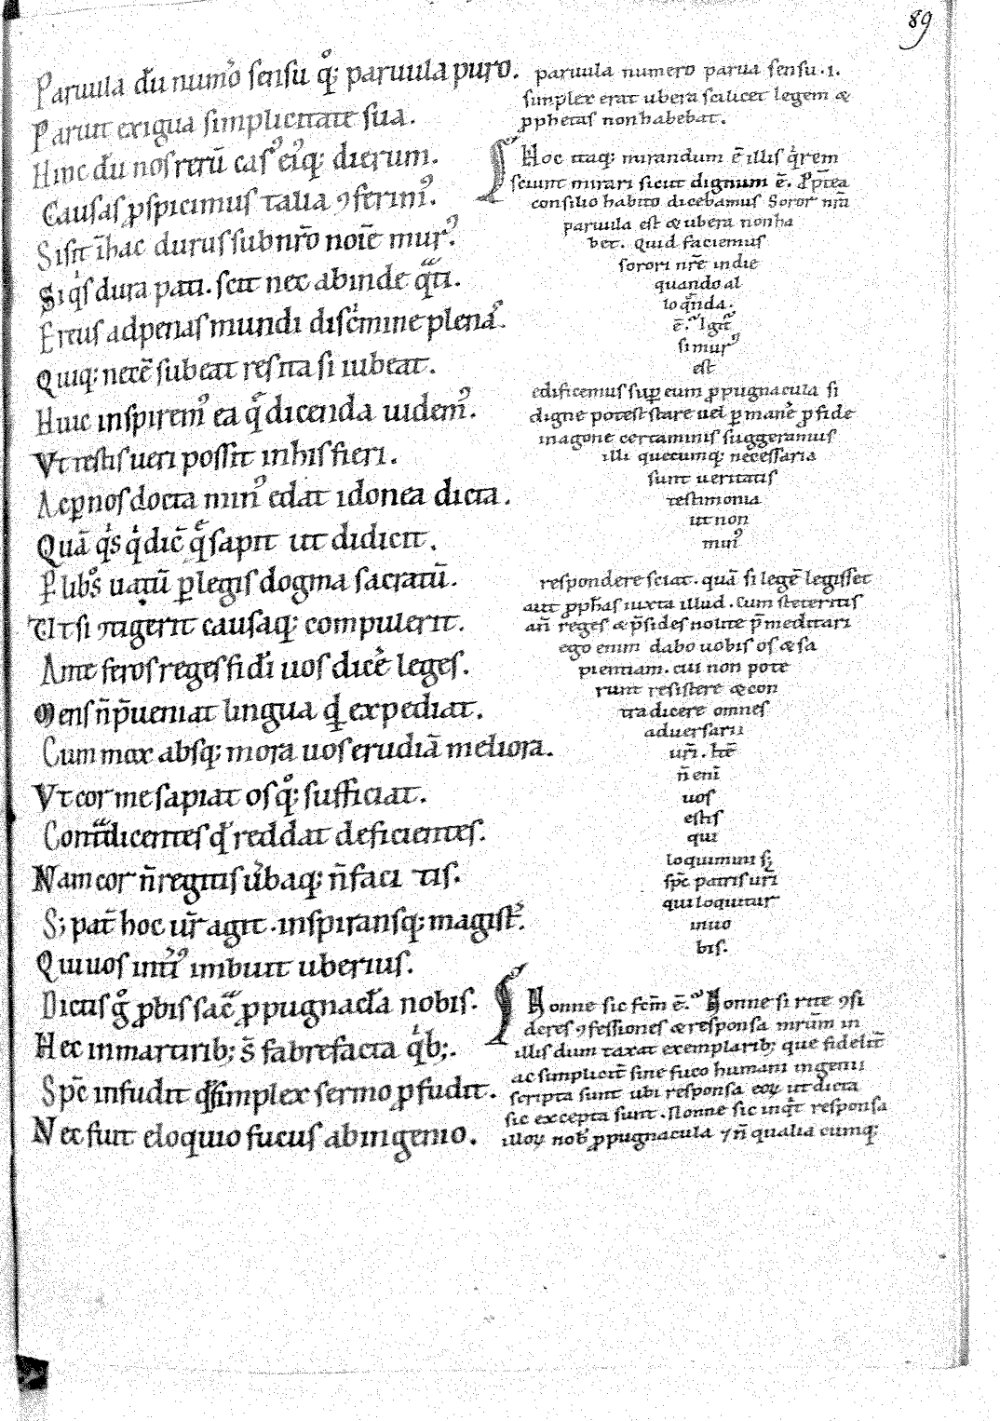 89
Paruula dũ num̉o sensu qͦ; paruula puro.
Paruit exigua simplicitate sua.
Hinc dũ nos rerũ casꝰ eiꝰq; dierum.
Causas ꝓspicimus talia ꝯferimꝰ.
Si sit ĩ hac durus sub nr̃o noĩe murꝰ.
Si qͥs dura pati. scit nec abinde qᷓti.
Ereus ad penas mundi discͥmine plenaꝰ.
Quiq; necẽ subeat res ita si iubeat.
Huic inspiremꝰ ea qᷓ dicenda uidemꝰ.
Vt testis ueri possit in his fieri.
Ac ꝑ nos docta minꝰ edat idonea dicta.
Quã qͥs qͥ dic̃ qᷓ sapit ut didicit.
P libͦs uatũ ꝑlegis dogma sacratũ.
Ut si ꝯtigerit causaq; compulerit.
Ante feros reges fidi uos dic̉e leges.
Mens ñ p̃ueniat lingua qđ expediat.
Cum mox absq; mora uos erudiã meliora.
Vt cor me sapiat os qͦ; sufficiat.
Contᷓdicentes qđ reddat deficientes.
Nam cor ñ regitis ủbaq; ñ facitis.
S; pat̃ hoc ur̃ agit. inspiransq; magist̉.
Qui uos intꝰ imbuit uberius.
Dictis gͦ ꝓbis sacᷓ ꝓpugnac̃la nobis.
Hec in martirib; s̃ fabrefacta qͥb;.
Spc̃ infudit qđ simplex sermo ꝓfudit.
Nec fuit eloquio fucus ab ingenio.
paruula numero parua sensu .i.
simplex erat ubera scilicet legem &
ꝓphetas non habebat.
Hoc itaq; mirandum ẽ illis qͥ rem
sciunt mirari sicut dignum ẽ. Ppt̃ea
consilio habito dicebamus Soror nr̃a
paruula est & ubera non ha
bet. Quid faciemus
sorori nr̃e in die
quando al
loqͤnda.
ẽ. Igit̃
si murꝰ
est
edificemus suꝑ eum ꝓpugnacula si
digne potest stare uel ꝑman̉e ꝓ fide
in agone certaminis suggeramus
illi quecumq; necessaria
sunt ueritatis
testimonia
ut non
minꝰ
respondere sciat. quã si legẽ legisset
aut ꝓph̃as iuxta illud. Cum steteritis
añ reges & p̃sides nolite p̃meditari
ego enim dabo uobis os & sa
pientiam. cui non pote
runt resistere & con
tradicere omnes
adversarii
ur̃i. It̃e
ñ enĩ
uos
estis
qui
loquimini s;
spc̃ patris ur̃i
qui loquitur
in uo
bis.
Nonne sic fc̃m ẽ. Nonne si rite ꝯsi
deres ꝯfessiones & responsa mr̃um in
illis dum taxat exemplarib; que fidelit̃
ac simplicit̃ sine fuco humani ingenii
scripta sunt ubi responsa eoꝝ ut dicta
sic excepta sunt. Nonne sic inqͣt responsa
illoꝝ nob̃ ꝓpugnacula ⁊ ñ qualia cumq;